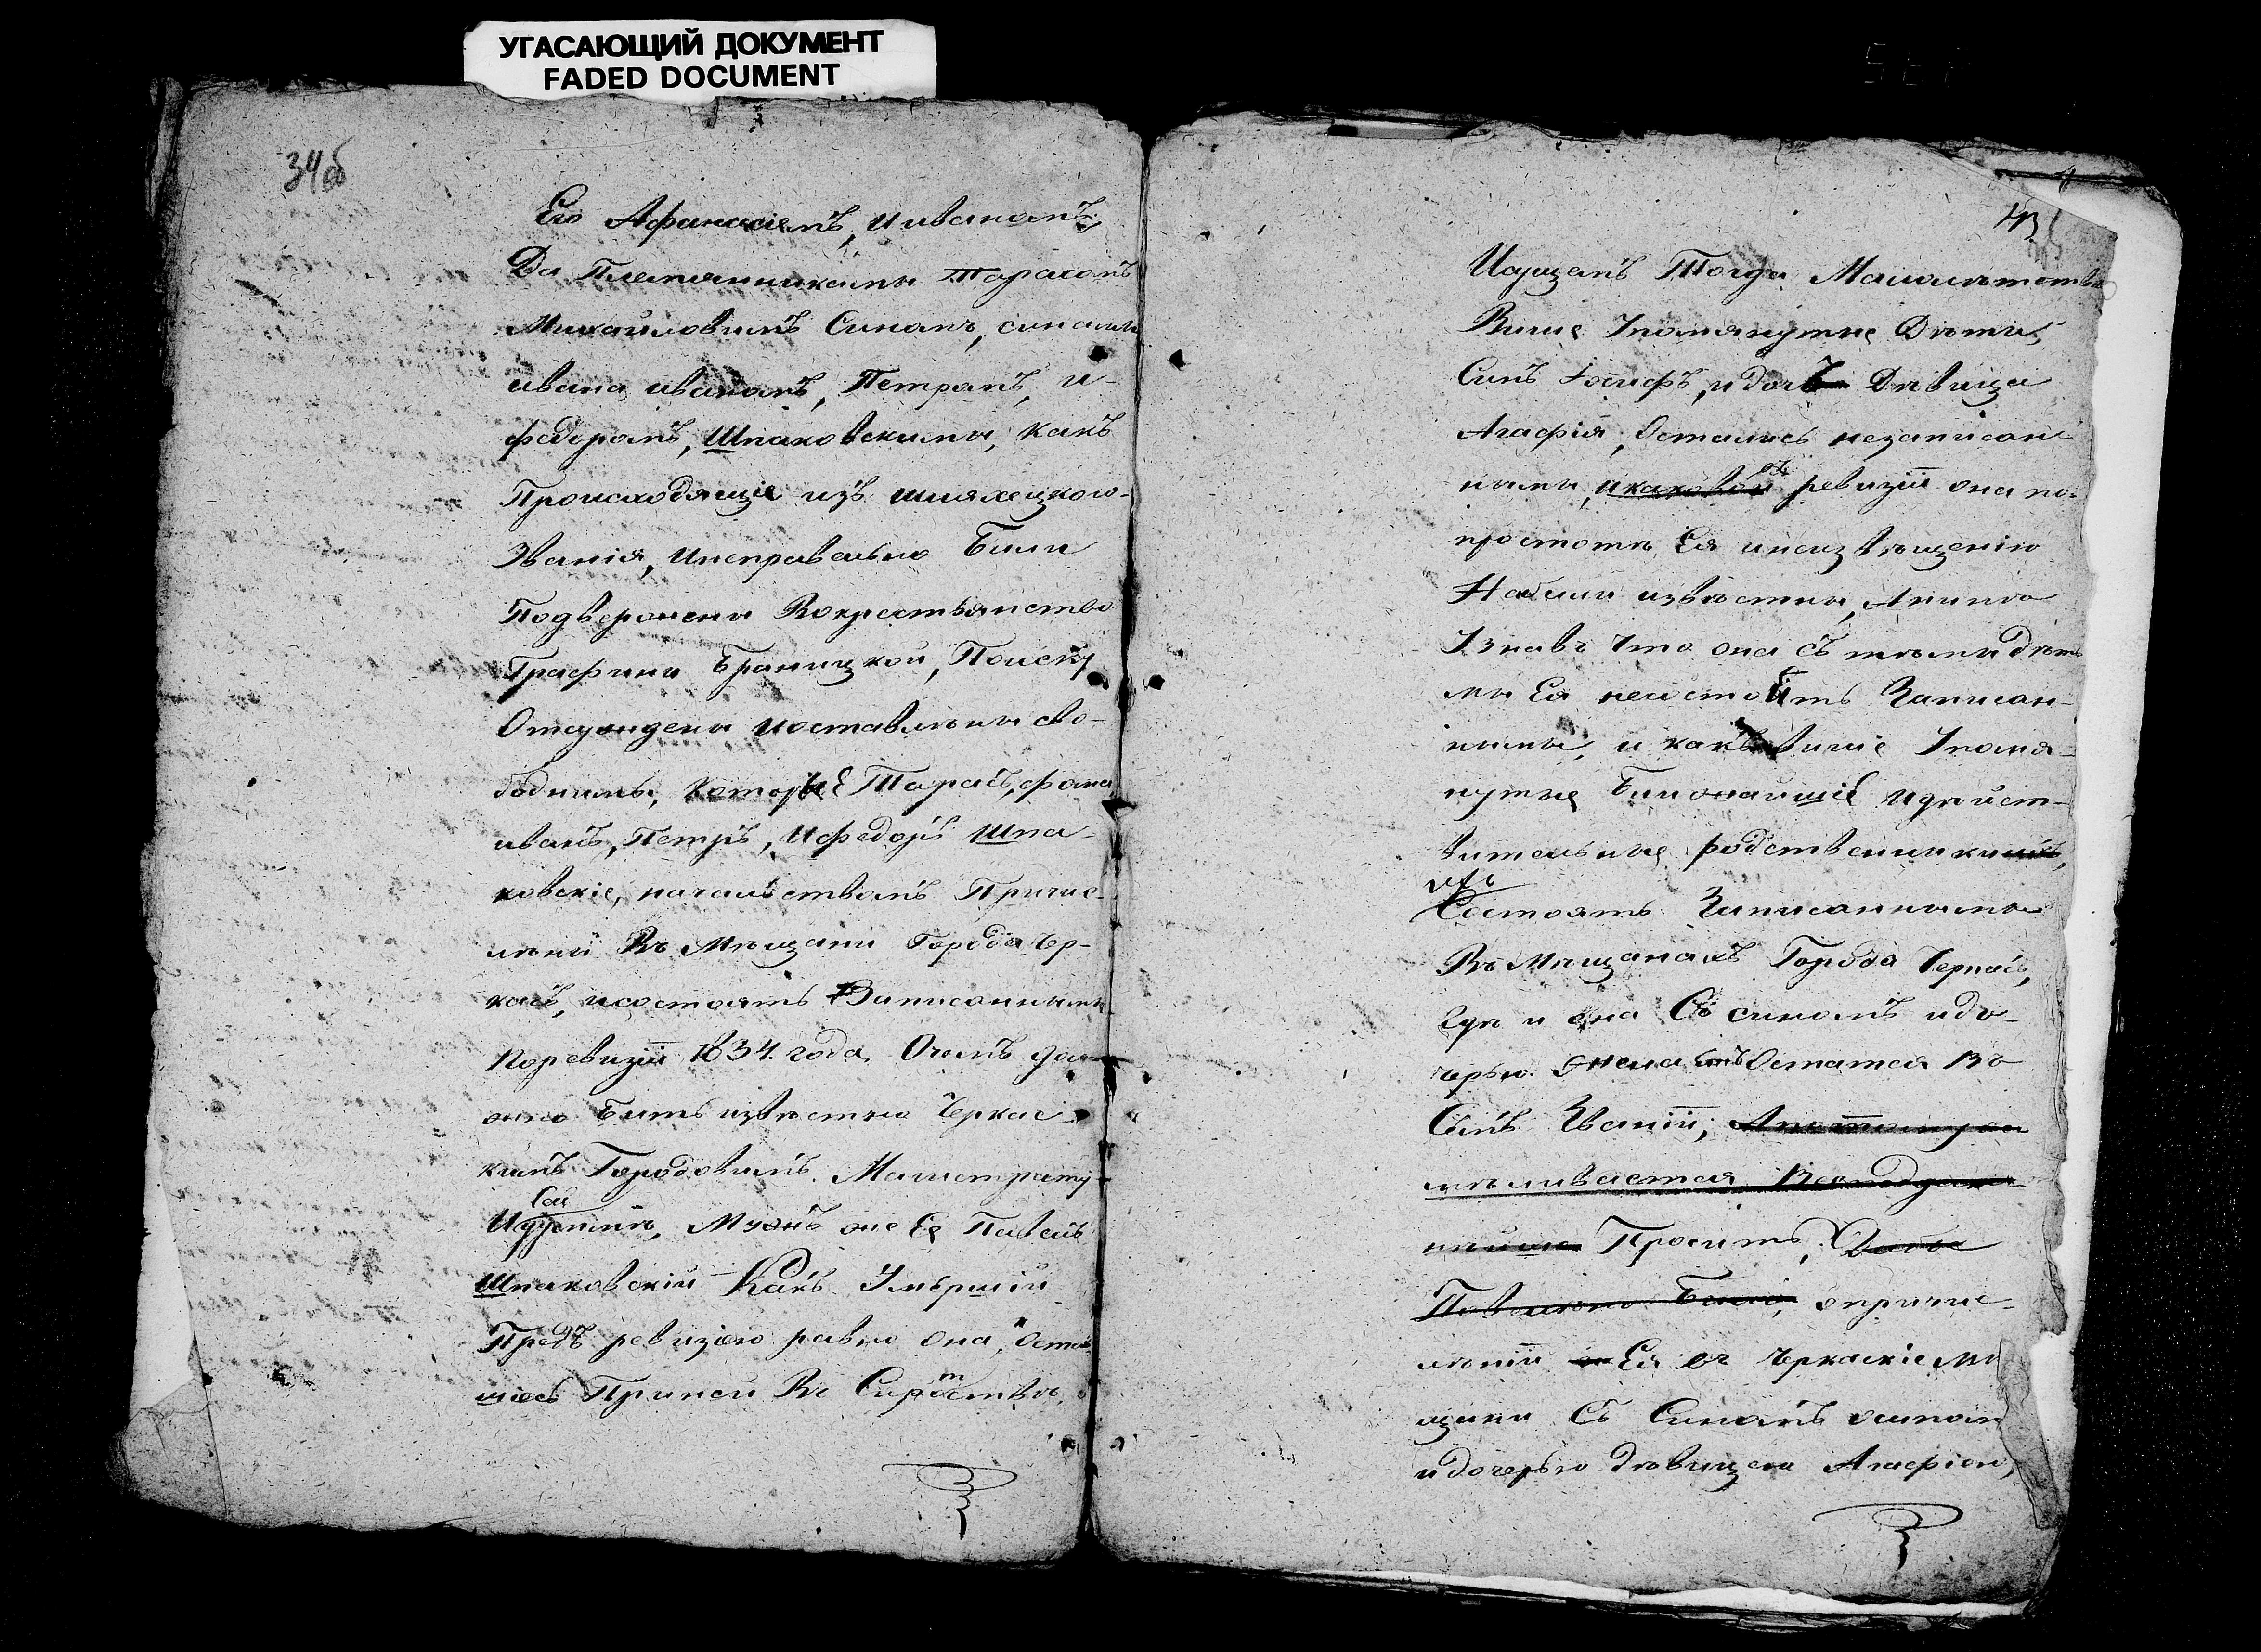 УГАСАЮЩИЙ ДОКУМЕНТ
FADED DOCUMENT
34об
Его Афанасіемъ, и иваномъ,
Да Племянниками Тарасомъ
Михайловимъ Синомъ, синами
ивана иваномъ, Петромъ, и
федоромъ, Шпаковскими, какъ
Происходящіе изъ шляхецкого
Званія, инеправельно Били
Подвержени Вокрестьянство
Графини Браницкой, Поиску
Отсуждени иоставлени сво-
бодними, которые Тарасъ, фома
иванъ, Петръ, ифедоръ Шпа-
ковскіе, началствомъ Причис-
лени Въ Мещани Города Чер-
касъ, исостоятъ Записанными
Поревизіи 1834. года, Очемъ дол-
жно Бить известно Черкас-
кимъ Городовимъ Магистрату
Мужъ же Ее Павелъ
Шпаковскій Какъ Умершій
Предъ ревизіею равно она, Остав
шись При ней Въ Сиротстве,
Тогда Малолетстве
Више Упомянутие Дети,
Синъ Іосифъ, и дочь Девица
Агафія, Остались незаписан
ними, ревизіи она по
простоте Ея инеизвещению
Небили известни, Анине
Узнавъ Что она съ теми деть
ми Ея несостоитъ Записан-
ними, и какъ више Упомя-
нутые Ближайшіе идейст-
вительные родственники
Состоятъ Записанными
Въ Мещанахъ Города Черкасъ,
где и она Съ синомъ идо-
черью желаетъ Остатся Во
Семъ Званіи,
Проситъ,
Повелено Било, опричис-
леніи Ея въ Черкаскіе Ме
щани Съ Синомъ осипом
идочерью Девицею Агафіею,